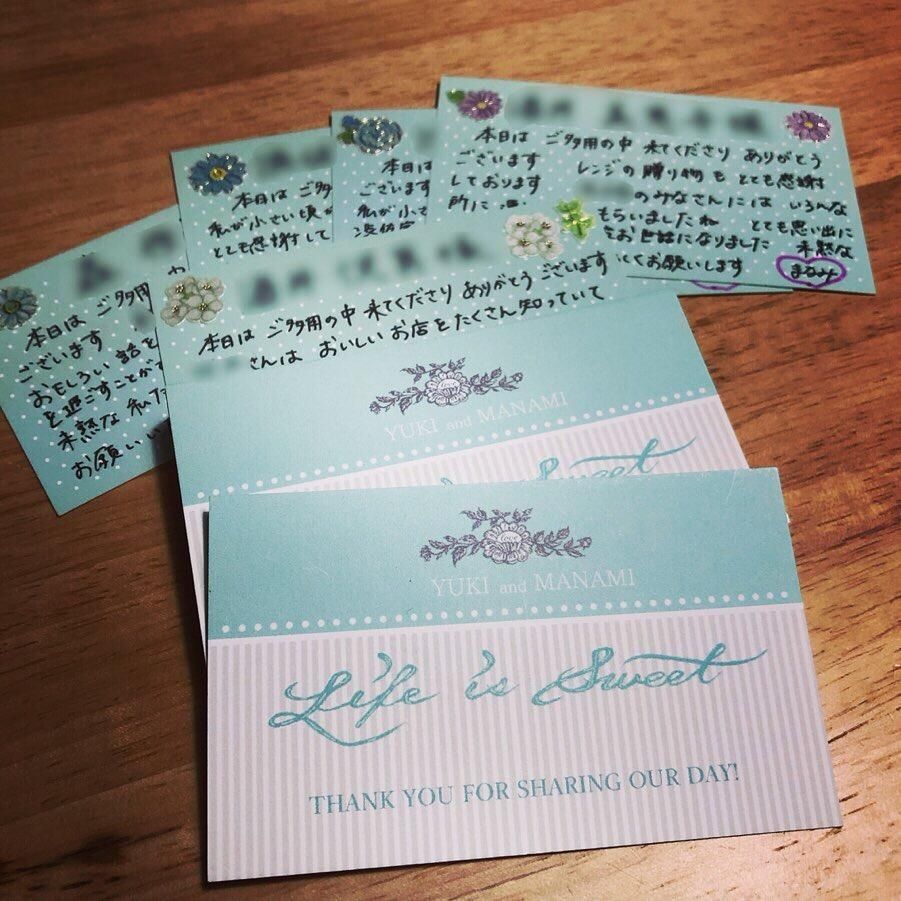 本日は ご多用の中 来てくださり ありがとう
ございます レンジの贈り物も とても感謝
しております のみなさんには いろんな
もらいましたね とても思い出に
お世話になりました 未熟な
お願いします
まなみ
本日は
ございます
私が小さ
本日は ご多
私が小さい頃か
とても感謝して
本日は ご多用
ございます
おもしろい話を
を過ごすことが
未熟な 私た
お願いい
本日は ご多用の中 来てくださり ありがとう ございます
さんは おいしい お店を たくさん 知っていて
love
YUKI and MANAMI
is Sweet
love
YUKI and MANAMI
Life is Sweet
THANK YOU FOR SHARING OUR DAY!